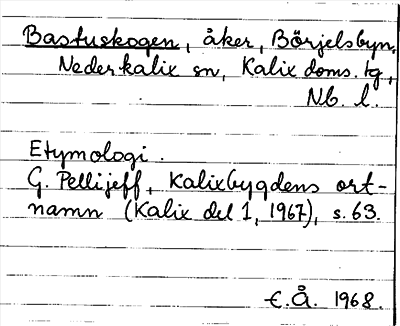 Bastuskogen, åker, Börjelsbyn,
Nederkalix sn, Kalix doms. tg,
Nb. l.
Etymologi.
G. Pellijeff, Kalixbygdens ort-
namn (Kalix del 1, 1967), s. 63.
E.Å. 1968.